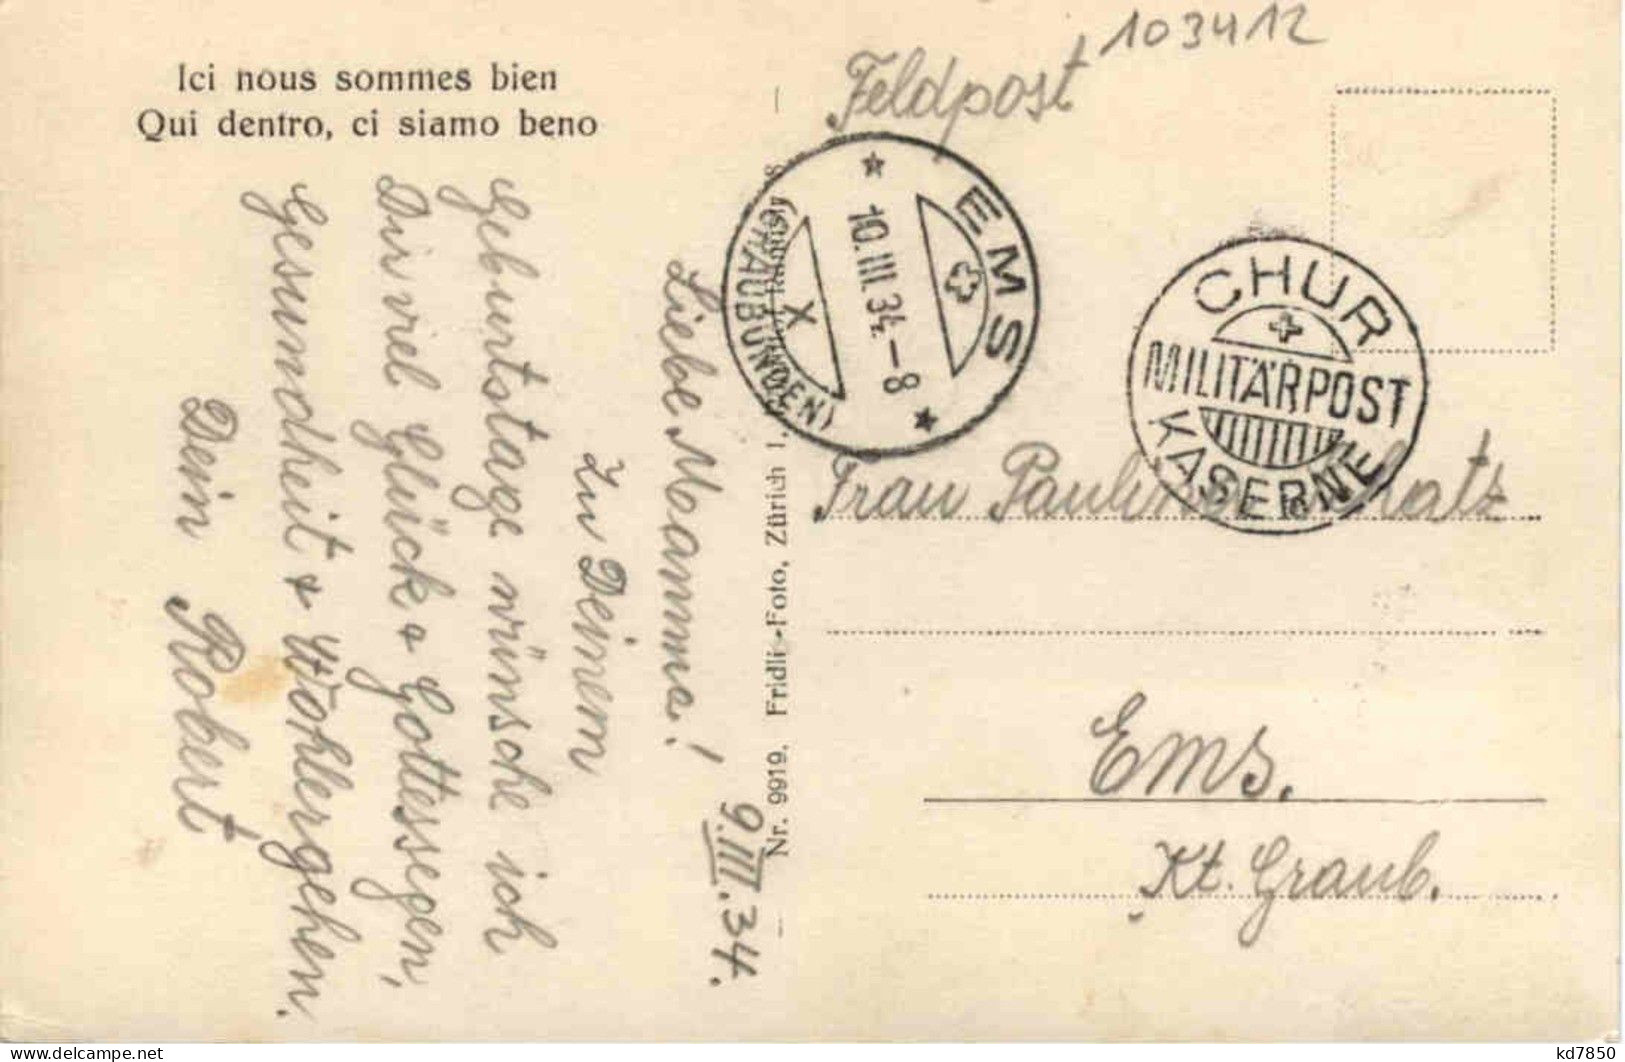 Ici nous sommes bien
Qui dentro, ci siamo beno
9.III.34.
Liebe Mamma!
Zu Deinem
Geburtstage wünsche ich
Dir viel Glück & Gottessegen,
Gesundheit & Wohlergehen.
Dein Robert
Nr. 9919. Fridli-Foto, Zürich 1.
Feldpost
103412
EMS
10.III.34.–8
X
(GRAUBÜNDEN)
CHUR
MILITÄRPOST
KASERNE
Frau
Ems.
Kt. Graub.
kd7850